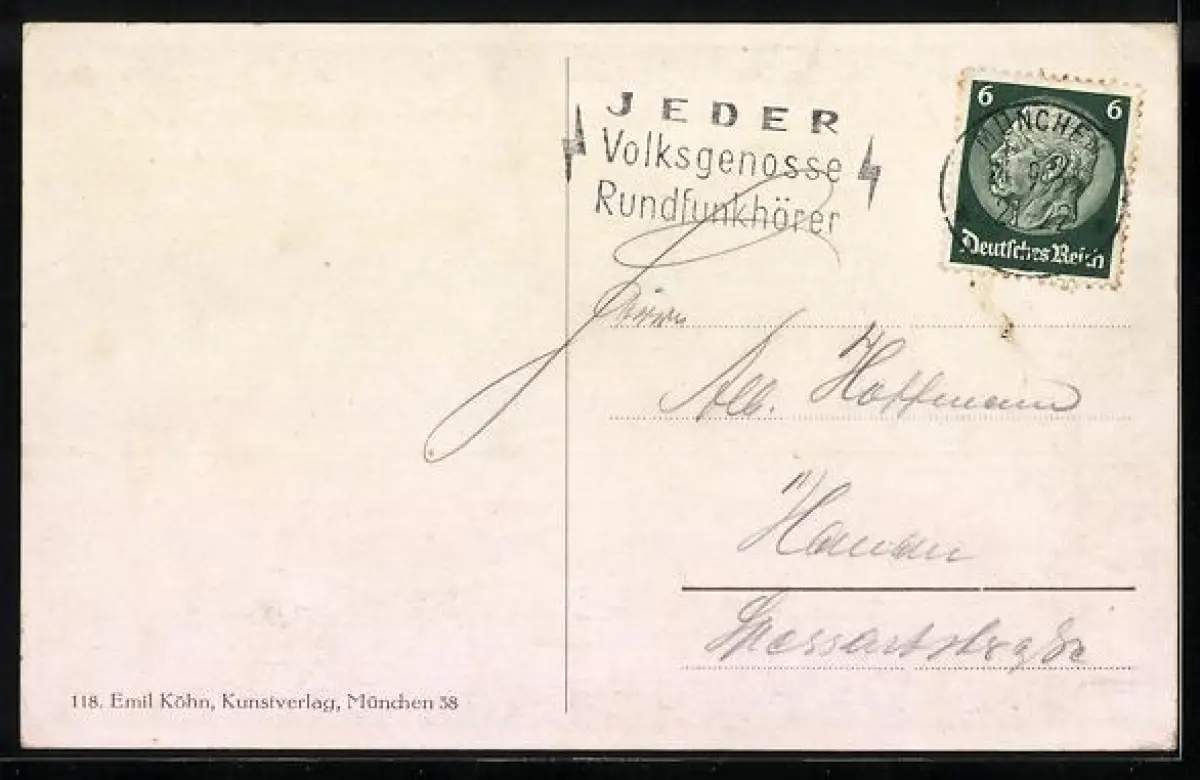 JEDER
Volksgenosse
Rundfunkhörer
6 6
MÜNCHEN
Deutsches Reich
Herrn
Alb. Hoffmann
Hanau
Spessartstraße
118. Emil Köhn, Kunstverlag, München 38